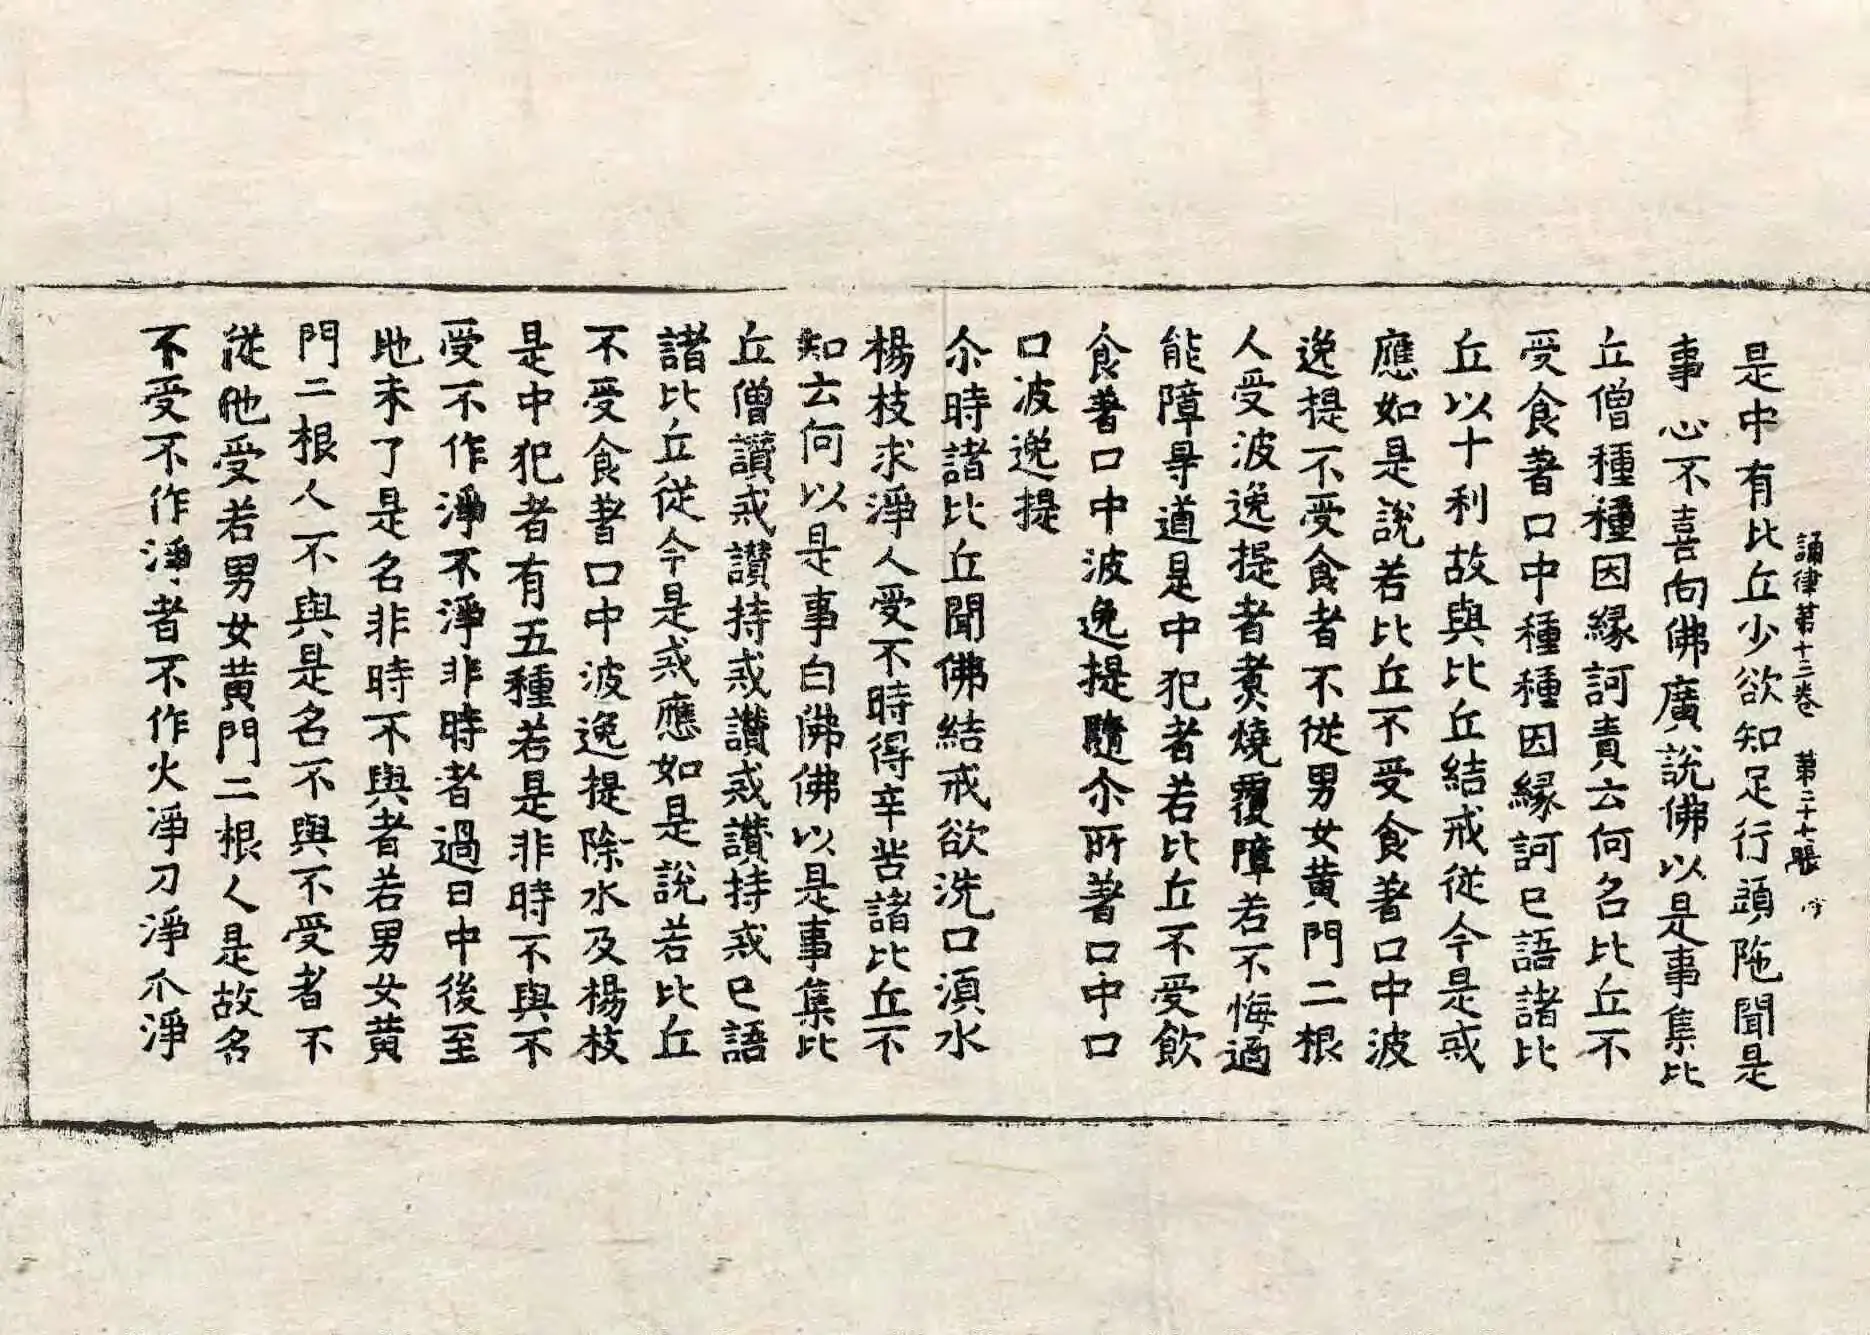 誦律第十三卷　第二十七張　伊
是中有比丘少欲知足行頭陁聞是
事心不喜向佛廣說佛以是事集比
丘僧種種因緣訶責云何名比丘不
受食著口中種種因緣訶已語諸比
丘以十利故與比丘結戒從今是戒
應如是說若比丘不受食著口中波
逸提不受食者不從男女黃門二根
人受波逸提者煑燒覆障若不悔過
能障㝵道是中犯者若比丘不受飲
食著口中波逸提隨尒所著口中口
口波逸提
尒時諸比丘聞佛結戒欲洗口湏水
楊枝求淨人受不時得辛苦諸比丘不
知云何以是事白佛佛以是事集比
丘僧讚戒讚持戒讚戒讚持戒已語
諸比丘從今是戒應如是說若比丘
不受食著口中波逸提除水及楊枝
是中犯者有五種若是非時不與不
受不作淨不淨非時者過日中後至
地未了是名非時不與者若男女黃
門二根人不與是名不與不受者不
從他受若男女黃門二根人是故名
不受不作淨者不作火淨刀淨爪淨